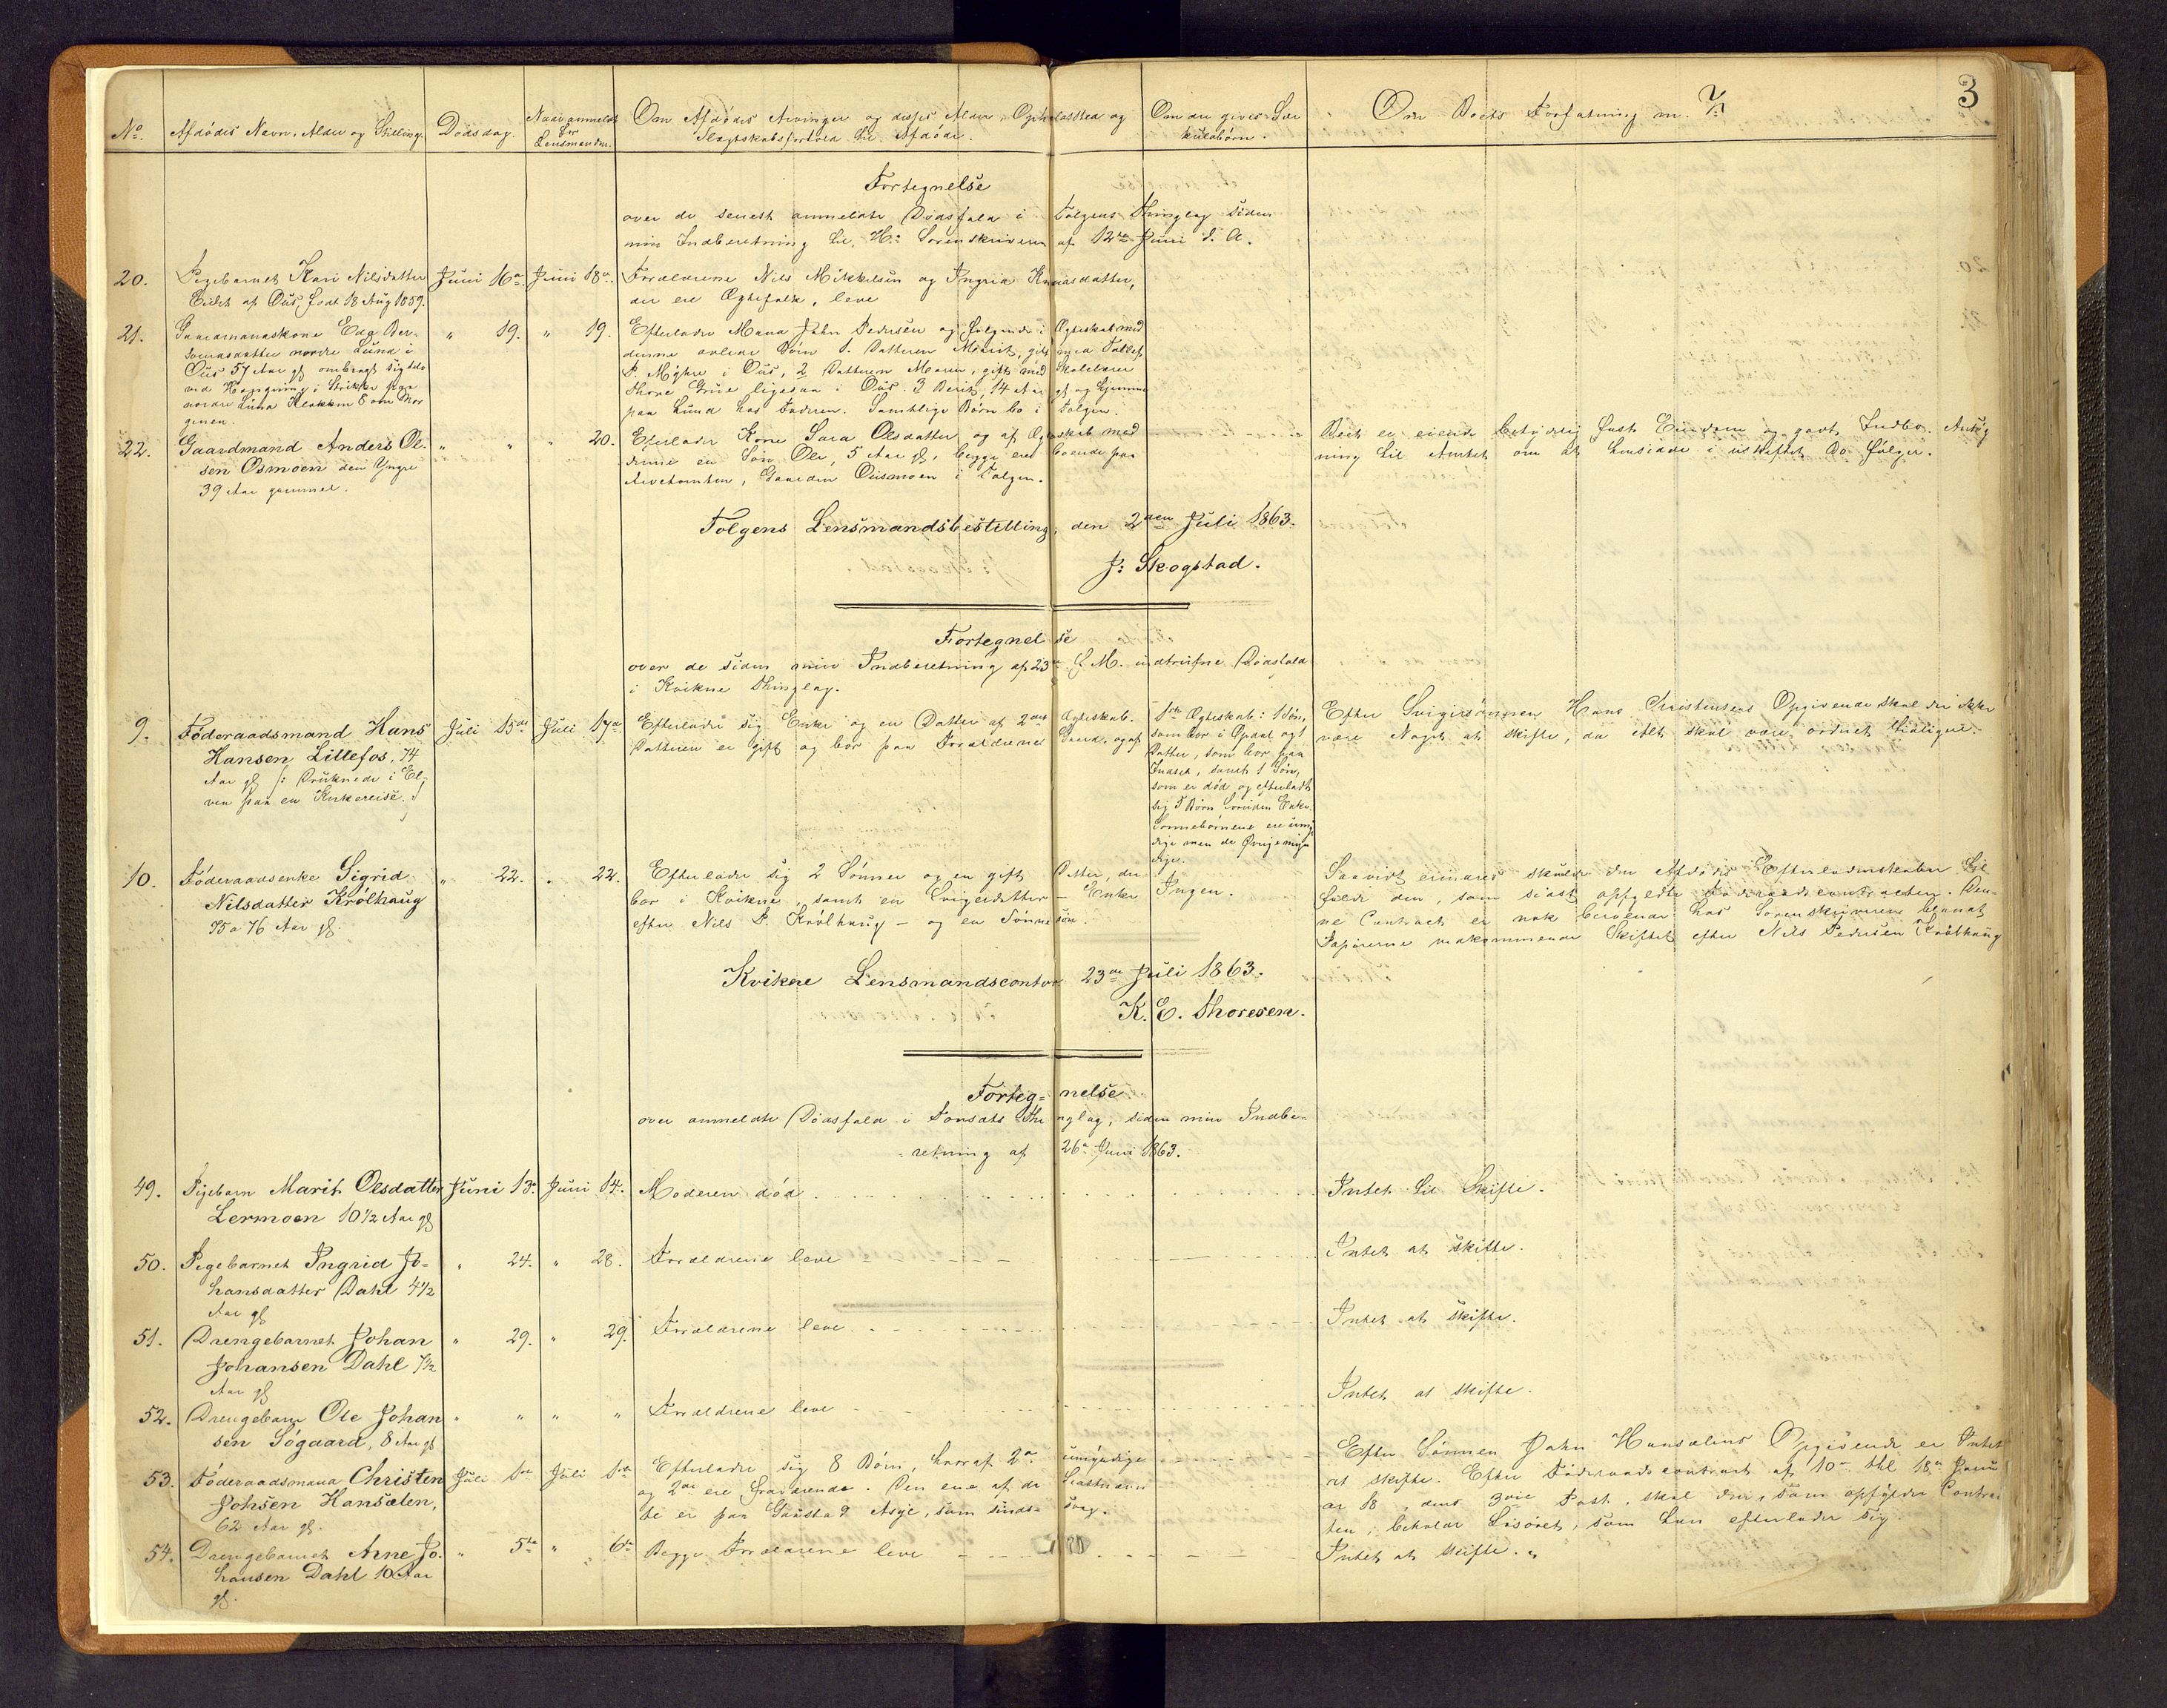 3
No.
Afdødes Navn, Alder og Stilling.
Dødsdag.
Naar anmeldt
for
Lensmanden.
Om Afdødes Arvinger og disses Alder, Opholdssted og
Slægtskabsforhold til Afdøde.
Om der gives Sær
kuldsbørn.
Om Boets Forfatning m. V.
Fortegnelse
over de senest anmeldte Dødsfald i Tolgens Thinglag siden
min Indberetning til Hr. Sorenskriveren af 12te Juni d. A.
20.
Pigebarnet Kari Nilsdatter
Eidet af Øus, født 18 Aug 1859.
Juni 16de
Juni 18de
Forældrene Nils Mikkelsen og Ingrid Knudsdatter,
der ere Ægtefolk, leve
21.
Gaardmandskone Eda Ber-
svendsdatter nordre Lund i
Øus 57 Aar gl ombragt sig selv
ved Hængning i Strikke paa
nordre Lund Klokken 8 om Mor
genen.
" 19.
" 19.
Efterlader Mand John Pedersen og følgende i Ægteskab med
denne avlede Børn 1. Datteren Marit, gift med Tollef
P. Myhre i Øus, 2 Datteren Maren, gift med Skolelærer
Thore Grue ligesaa i Øus. 3 Berit, 14 Aar gl og hjemme
paa Lund hos Faderen. Samtlige Børn bo i Tolgen.
22.
Gaardmand Anders Ol-
sen Osmoen den Yngre
39 Aar gammel.
" "
" 20.
Efterlader Kone Sara Olsdatter og af Ægteskab med
denne en Søn Ole, 5 Aar gl, begge ere boende paa
Arvetomten, Gaarden Øusmoen i Tolgen.
Boet er eiende betydelig fast Eiendom og godt Indbo. Ansøg
ning til Amtet om at hensidde i uskiftet Bo følger.
Tolgens Lensmandsbestilling, den 2den Juli 1863.
J: Skogstad.
Fortegnelse
over de siden min Indberetning af 23de f. M. indtrufne Dødsfald
i Kvikne Thinglag.
9.
Føderaadsmand Hans
Hansen Lillefos, 74
Aar gl /: Druknede i El-
ven paa en Kirkereise. :/
Juli 15de
Juli 17de
Efterlader sig Enke og en Datter af 2det Ægteskab.
Datteren er gift og bor paa Forældrenes Gaard, og af
1ste Ægteskab: 1 Søn,
som bor i Opdal og 1
Datter, som bor paa
Indset, samt 1 Søn,
som er død og efterladt
sig 5 Børn foruden Enke.
Sønnebørnene ere umyn
dige men de Øvrige myn
dige.
Efter Svigersønnen Hans Christensens Opgivende skal der ikke
være Noget at skifte, da Alt skal være ordnet tidligere.
10.
Føderaadsenke Sigrid
Nilsdatter Krølhaug
75 a 76 Aar gl.
" 22.
" 22.
Efterlader sig 2 Sønner og en gift Datter, der
bor i Kvikne, samt en Svigerdatter – Enke
efter Nils P. Krølhaug – og en Sønnesøn.
Ingen.
Saavidt erindres skulde den Afdødes Efterladenskaber til
falde den, som sidst opfyldte Føderaadscontracten. Den-
ne Contract er nok beroende hos Sorenskriveren blandt
Papirerne vedkommende Skiftet efter Nils Pedersen Krølhaug
Kvikne Lensmandscontor 23de Juli 1863.
K. E. Thoresen.
Forteg- nelse
over anmeldte Dødsfald i Tonsæts Thinglag, siden min Indbe-
retning af 26de Juni 1863.
49.
Pigebarn Marit Olsdatter
Lermoen 10 1/2 Aar gl
Juni 13de
Juni 14.
Moderen død
Intet til Skifte.
50.
Pigebarnet Ingrid Jo-
hansdatter Dahl 4 1/2
Aar gl
" 24.
" 28.
Forældrene leve
Intet at skifte.
51.
Drengebarnet Johan
Johansen Dahl 7 1/2
Aar gl
" 29.
" 29.
Forældrene leve
Intet at skifte.
52.
Drengebarn Ole Johan
sen Søgaard, 8 Aar gl
" "
" "
Forældrene leve
Intet at skifte.
53.
Føderaadsmand Christen
Johsen Hansælen,
62 Aar gl.
Juli 1ste
Juli 1ste
Efterlader sig 8 Børn, hvoraf 2de umyndige
og 2de ere fraværende. Den ene af de
te er paa Gaustad Asyl, som sinds- svag.
Efter Sønnen John Hansælens Opgivende er Intet
at skifte. Efter Føderaadscontract af 10de thl 18de Janu
ar 18 , dens 3die Post, skal den, som opfylder Contrac
ten, beholde Løsøret, som han efterlader sig.
54.
Drengebarnet Arne Jo-
hansen Dahl 10 Aar
gl.
" 5te
" 6te
Begge Forældrene leve
Intet at skifte.